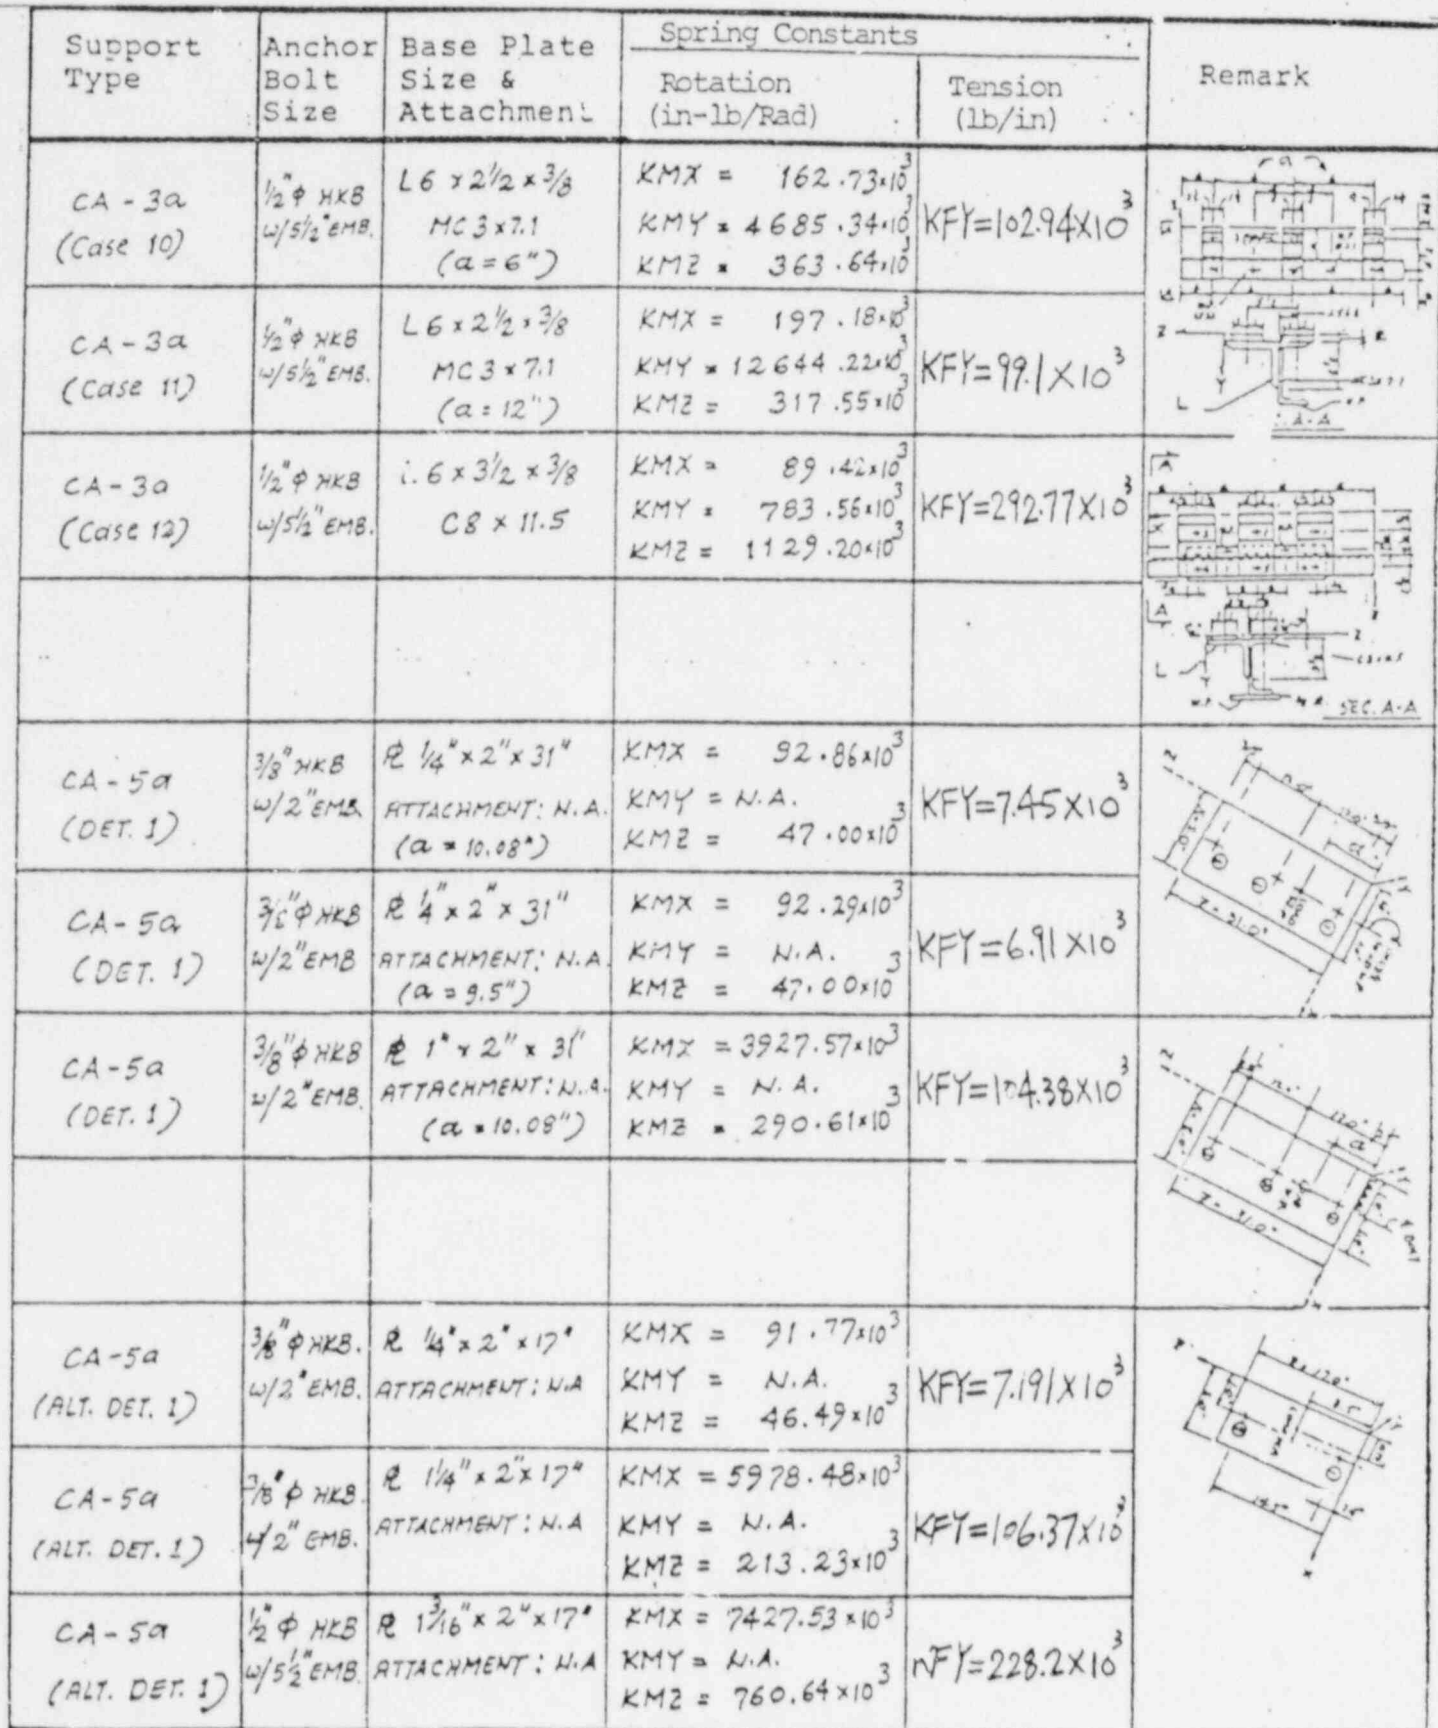 Support Type
Anchor Bolt Size
Base Plate Size & Attachment
Spring Constants
Rotation (in-lb/Rad)
Tension (lb/in)
Remark
CA - 3a
(Case 10)
1/2" φ HKB
w/5 1/2" EMB.
L 6 x 2 1/2 x 3/8
MC 3 x 7.1
(a = 6")
KMX = 162.73x10³
KMY = 4685.34x10³
KMZ = 363.64x10³
KFY=102.94X10³
CA - 3a
(Case 11)
1/2" φ HKB
w/5 1/2" EMB.
L 6 x 2 1/2 x 3/8
MC 3 x 7.1
(a = 12")
KMX = 197.18x10³
KMY = 12644.22x10³
KMZ = 317.55x10³
KFY=99.1X10³
L
A-A
CA - 3a
(Case 12)
1/2" φ HKB
w/5 1/2" EMB.
L 6 x 3 1/2 x 3/8
C8 x 11.5
KMX = 89.42x10³
KMY = 783.56x10³
KMZ = 1129.20x10³
KFY=292.77X10³
A
A
L
SEC. A-A
CA - 5a
(DET. 1)
3/8" HKB
w/2" EMB.
PL 1/4" x 2" x 31"
ATTACHMENT: N.A.
(a = 10.08")
KMX = 92.86x10³
KMY = N.A.
KMZ = 47.00x10³
KFY=7.45X10³
CA - 5a
(DET. 1)
3/8" φ HKB
w/2" EMB
PL 1/4" x 2" x 31"
ATTACHMENT: N.A.
(a = 9.5")
KMX = 92.29x10³
KMY = N.A.
KMZ = 47.00x10³
KFY=6.91X10³
CA - 5a
(DET. 1)
3/8" φ HKB
w/2" EMB.
PL 1" x 2" x 31"
ATTACHMENT: N.A.
(a = 10.08")
KMX = 3927.57x10³
KMY = N.A.
KMZ = 290.61x10³
KFY=104.38X10³
CA - 5a
(ALT. DET. 1)
3/8" φ HKB.
w/2" EMB.
PL 1/4" x 2" x 17"
ATTACHMENT: N.A
KMX = 91.77x10³
KMY = N.A.
KMZ = 46.49x10³
KFY=7.191X10³
CA - 5a
(ALT. DET. 1)
3/8" φ HKB.
w/2" EMB.
PL 1 1/4" x 2" x 17"
ATTACHMENT: N.A
KMX = 5978.48x10³
KMY = N.A.
KMZ = 213.23x10³
KFY=106.37X10³
CA - 5a
(ALT. DET. 1)
1/2" φ HKB
w/5 1/2" EMB.
PL 1 3/16" x 2" x 17"
ATTACHMENT: N.A
KMX = 7427.53x10³
KMY = N.A.
KMZ = 760.64x10³
KFY=228.2X10³